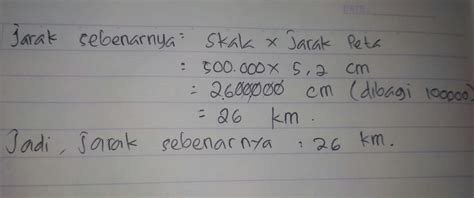 Jarak sebenarnya = Skala x Jarak Peta
= 500.000 x 5,2 cm
= 2.600.000 cm (dibagi 100000)
= 26 km.
Jadi, Jarak sebenarnya = 26 km.